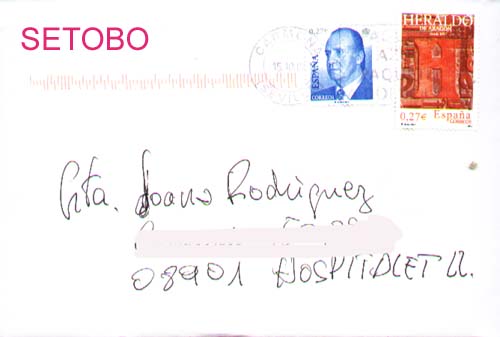 SETOBO
0,27€
ESPAÑA
CORREOS
HERALDO
DE ARAGON
0,27€ España
CORREOS
CARMO
15
SEVIL
Srta. Joana Rodríguez
08901 HOSPITALET LL.